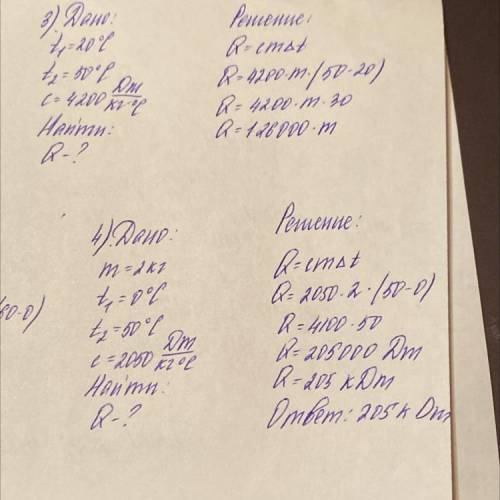 3). Дано:
t₁=20°C
t₂=50°C
c=4200 Dm/кг·°C
Найти:
Q-?
Решение:
Q=cm∆t
Q=4200·m·(50-20)
Q=4200·m·30
Q=126000·m
50-0)
4). Дано:
m=2кг
t₁=0°C
t₂=50°C
c=2050 Dm/кг°C
Найти:
Q-?
Решение:
Q=cm∆t
Q=2050·2·(50-0)
Q=4100·50
Q=205000 Dm
Q=205 кDm
Ответ: 205к Dm